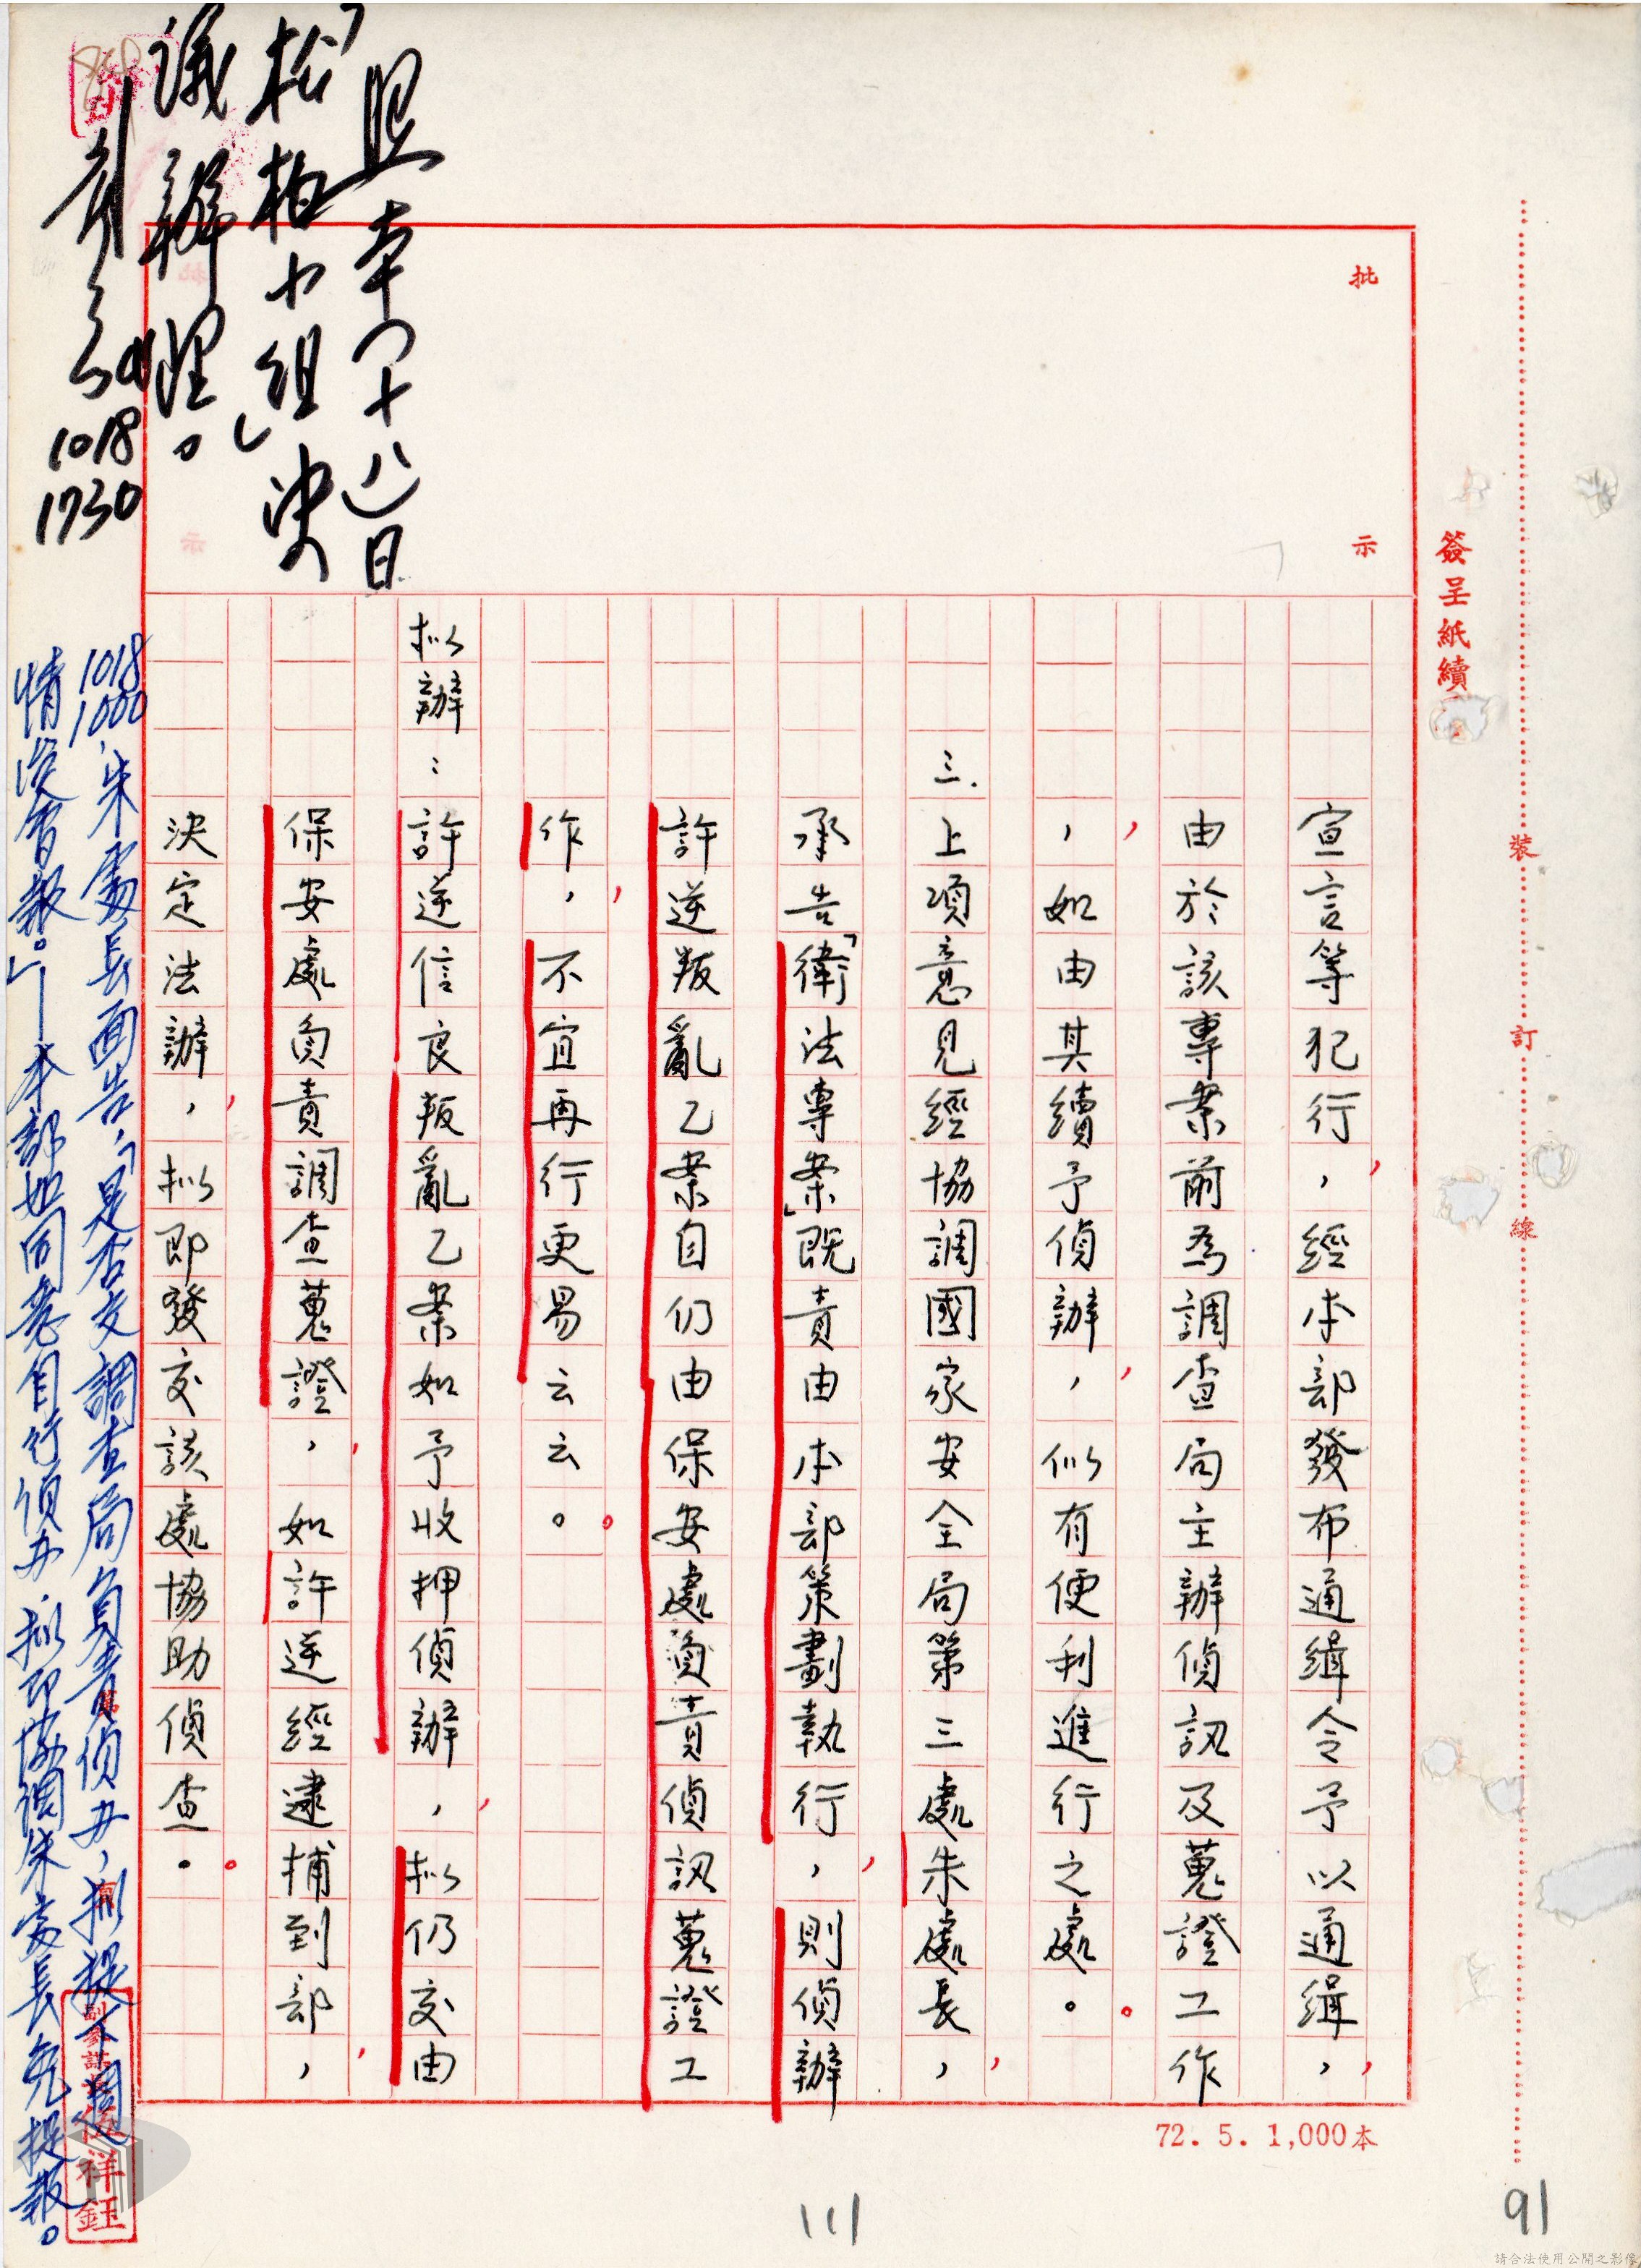 簽呈紙續
裝訂線
批示
宣言等犯行，經本部發布通緝令予以通緝，
由於該專案前為調查局主辦偵訊及蒐證工作
，如由其續予偵辦，似有便利進行之處。
三.上項意見經協調國家安全局第三處朱處長，
承告「衛法專案」既責由本部策劃執行，則偵辦
許逆叛亂乙案自仍由保安處負責偵訊蒐證工
作，不宜再行更易云云。
拟辦：許逆信良叛亂乙案如予收押偵辦，拟仍交由
保安處負責調查蒐證，如許逆經逮捕到部，
決定法辦，拟即發交該處協助偵查。
照本(十八)日
「松柏小組」決
議辦理。
1018
1730
1018
1000，朱處長面告，「是否交調查局負責偵办，拟提下週
情治會報。」—本部如同意自行偵办，拟即協調朱處長免提報。
祥鈺
72. 5. 1,000本
111
91
請合法使用公開之影像